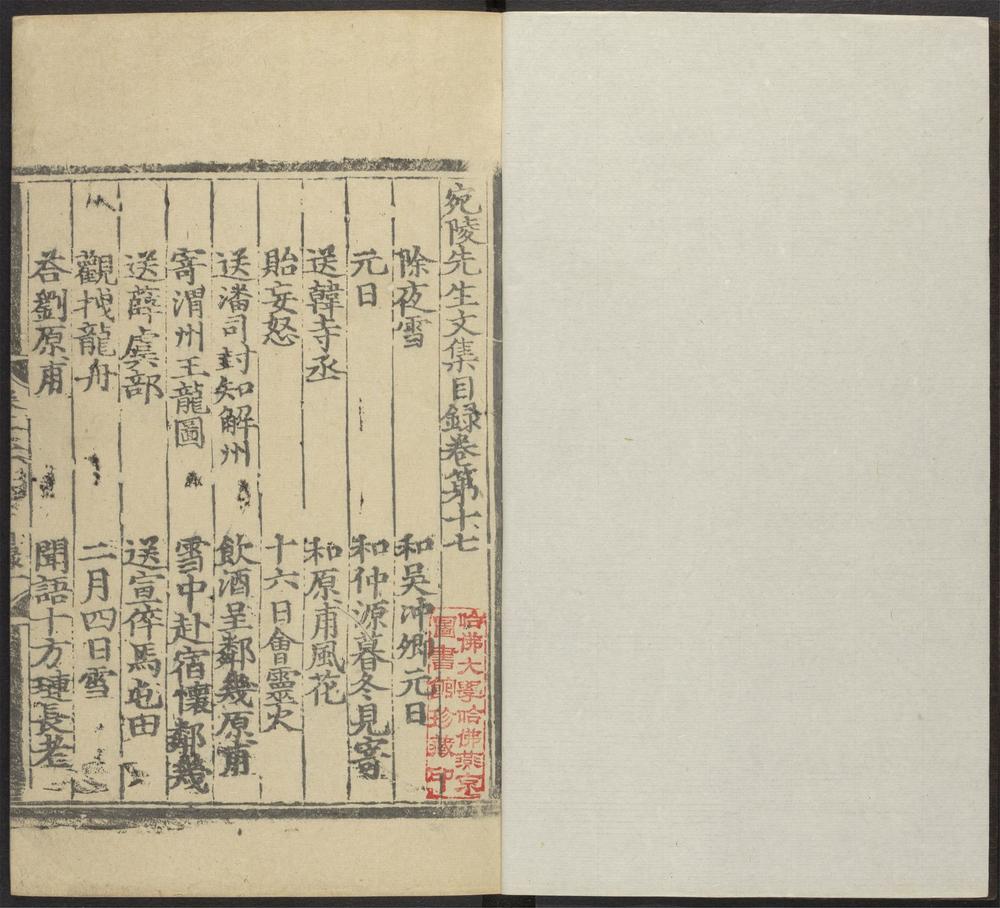 宛陵先生文集目録卷第十七
除夜雪 和吳冲卿元日
元日 和仲源暮冬見寄
送韓寺丞 和原甫風花
貽妄怒 十六日會靈火
送潘司封知解州 飲酒呈鄰幾原甫
寄渭州王龍圖 雪中赴宿懷鄰幾
送薛虞部 送宣倅馬屯田
觀拽龍舟 二月四日雪
荅劉原甫 聞語十方璉長老
哈佛大學哈佛燕京
圖書館珍藏印